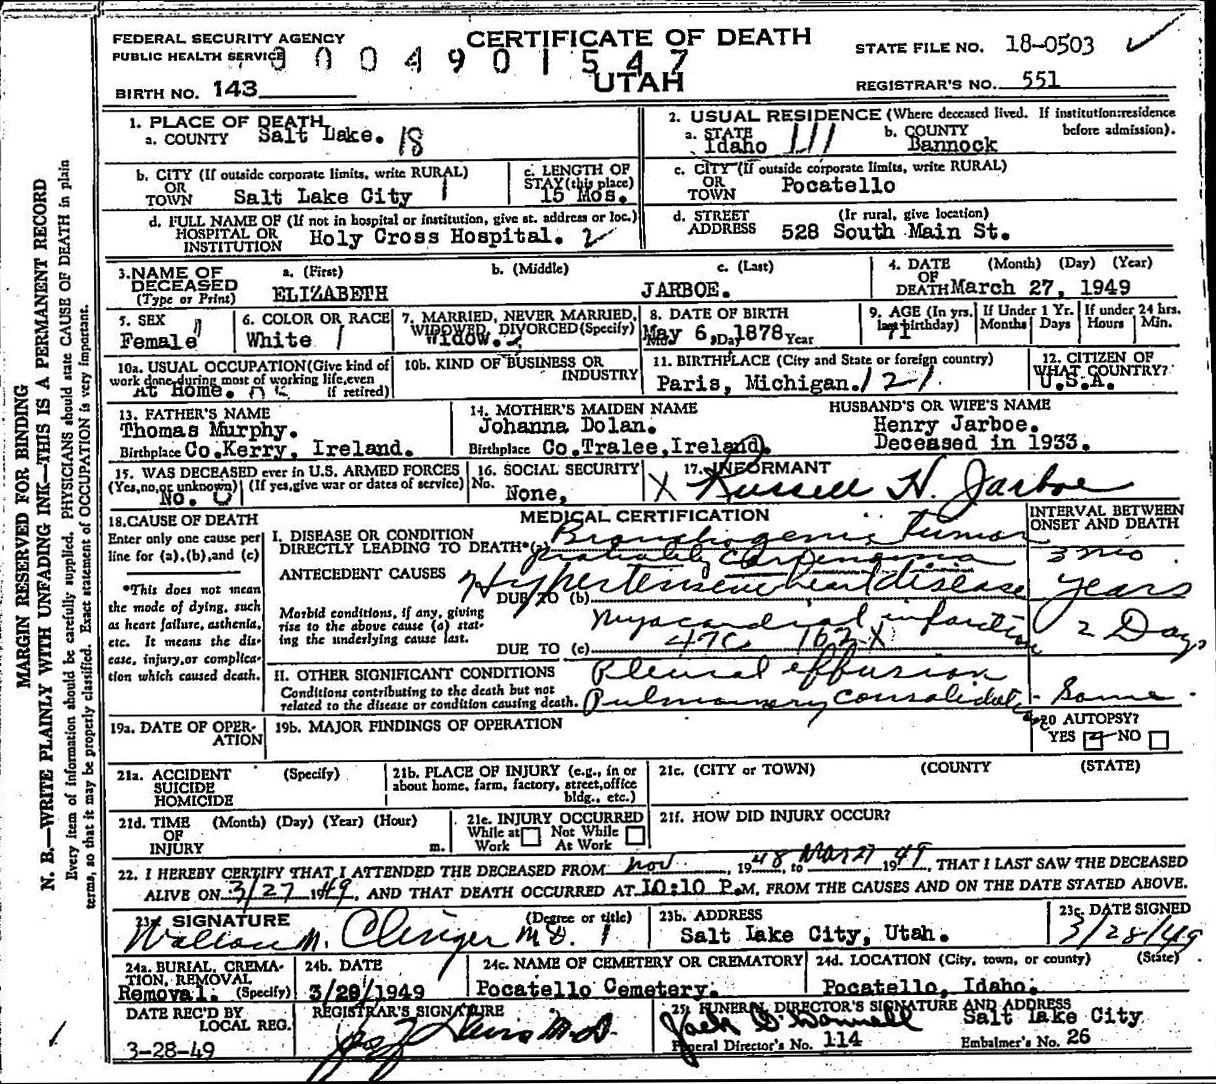 FEDERAL SECURITY AGENCY
PUBLIC HEALTH SERVICE
CERTIFICATE OF DEATH
3004901547
UTAH
STATE FILE NO. 18-0503
REGISTRAR'S NO. 551
BIRTH NO. 143
1. PLACE OF DEATH
a. COUNTY Salt Lake. 18
2. USUAL RESIDENCE (Where deceased lived. If institution: residence before admission).
a. STATE Idaho
b. COUNTY Bannock
b. CITY (If outside corporate limits, write RURAL)
OR
TOWN Salt Lake City 1
c. LENGTH OF
STAY (this place)
15 Mos.
c. CITY (If outside corporate limits, write RURAL)
OR
TOWN Pocatello
d. FULL NAME OF (If not in hospital or institution, give st. address or loc.)
HOSPITAL OR
INSTITUTION Holy Cross Hospital. 2
d. STREET
ADDRESS (If rural, give location)
528 South Main St.
3. NAME OF
DECEASED
(Type or Print)
a. (First) b. (Middle) c. (Last)
ELIZABETH JARBOE.
4. DATE (Month) (Day) (Year)
OF
DEATH March 27, 1949
5. SEX
Female
6. COLOR OR RACE
White 1
7. MARRIED, NEVER MARRIED,
WIDOWED, DIVORCED (Specify)
Widow.
8. DATE OF BIRTH
May 6, 1878
9. AGE (In yrs.
last birthday)
71
If Under 1 Yr.
Months Days
If under 24 hrs.
Hours Min.
10a. USUAL OCCUPATION (Give kind of
work done during most of working life, even
if retired)
At Home.
10b. KIND OF BUSINESS OR
INDUSTRY
11. BIRTHPLACE (City and State or foreign country)
Paris, Michigan. 121
12. CITIZEN OF
WHAT COUNTRY?
U.S.A.
13. FATHER'S NAME
Thomas Murphy.
Birthplace Co. Kerry, Ireland.
14. MOTHER'S MAIDEN NAME
Johanna Dolan.
Birthplace Co. Tralee, Ireland.
HUSBAND'S OR WIFE'S NAME
Henry Jarboe.
Deceased in 1933.
15. WAS DECEASED ever in U.S. ARMED FORCES
(Yes, no, or unknown) (If yes, give war or dates of service)
No. 0
16. SOCIAL SECURITY
No. None,
17. INFORMANT
X Russell H. Jarboe
18. CAUSE OF DEATH
Enter only one cause per
line for (a), (b), and (c)
*This does not mean
the mode of dying, such
as heart failure, asthenia,
etc. It means the dis-
ease, injury, or complica-
tion which caused death.
MEDICAL CERTIFICATION
INTERVAL BETWEEN
ONSET AND DEATH
I. DISEASE OR CONDITION
DIRECTLY LEADING TO DEATH*(a)
Bronchogenic tumor
probably carcinoma
3 mo
ANTECEDENT CAUSES
DUE TO (b) Hypertensive heart disease years
Morbid conditions, if any, giving
rise to the above cause (a) stat-
ing the underlying cause last.
myocardial infarction 2 Days
DUE TO (c) 470 162X
II. OTHER SIGNIFICANT CONDITIONS
Conditions contributing to the death but not
related to the disease or condition causing death.
Pleural effusion
Pulmonary consolidation - Some.
19a. DATE OF OPER-
ATION
19b. MAJOR FINDINGS OF OPERATION
20 AUTOPSY?
YES NO
21a. ACCIDENT (Specify)
SUICIDE
HOMICIDE
21b. PLACE OF INJURY (e.g., in or
about home, farm, factory, street, office
bldg., etc.)
21c. (CITY OR TOWN) (COUNTY) (STATE)
21d. TIME (Month) (Day) (Year) (Hour)
OF
INJURY m.
21e. INJURY OCCURRED
While at Work Not While At Work
21f. HOW DID INJURY OCCUR?
22. I HEREBY CERTIFY THAT I ATTENDED THE DECEASED FROM nov, 1948, to Mar 27 1949, THAT I LAST SAW THE DECEASED
ALIVE ON 3/27 1949, AND THAT DEATH OCCURRED AT 10:10 P.M, FROM THE CAUSES AND ON THE DATE STATED ABOVE.
SIGNATURE (Degree or title)
M. Clinger M.D. 1
23b. ADDRESS
Salt Lake City, Utah.
23c. DATE SIGNED
3/28/49
24a. BURIAL, CREMA-
TION, REMOVAL
Removal. (Specify)
24b. DATE
3/28/1949
24c. NAME OF CEMETERY OR CREMATORY
Pocatello Cemetery.
24d. LOCATION (City, town, or county) (State)
Pocatello, Idaho.
DATE REC'D BY
LOCAL REG.
3-28-49
REGISTRAR'S SIGNATURE
25. FUNERAL DIRECTOR'S SIGNATURE AND ADDRESS
Jack O'Donnell Salt Lake City
Funeral Director's No. 114 Embalmer's No. 26
MARGIN RESERVED FOR BINDING
N. B.—WRITE PLAINLY WITH UNFADING INK—THIS IS A PERMANENT RECORD
Every item of information should be carefully supplied. PHYSICIANS should state CAUSE OF DEATH in plain
terms, so that it may be properly classified. Exact statement of OCCUPATION is very important.